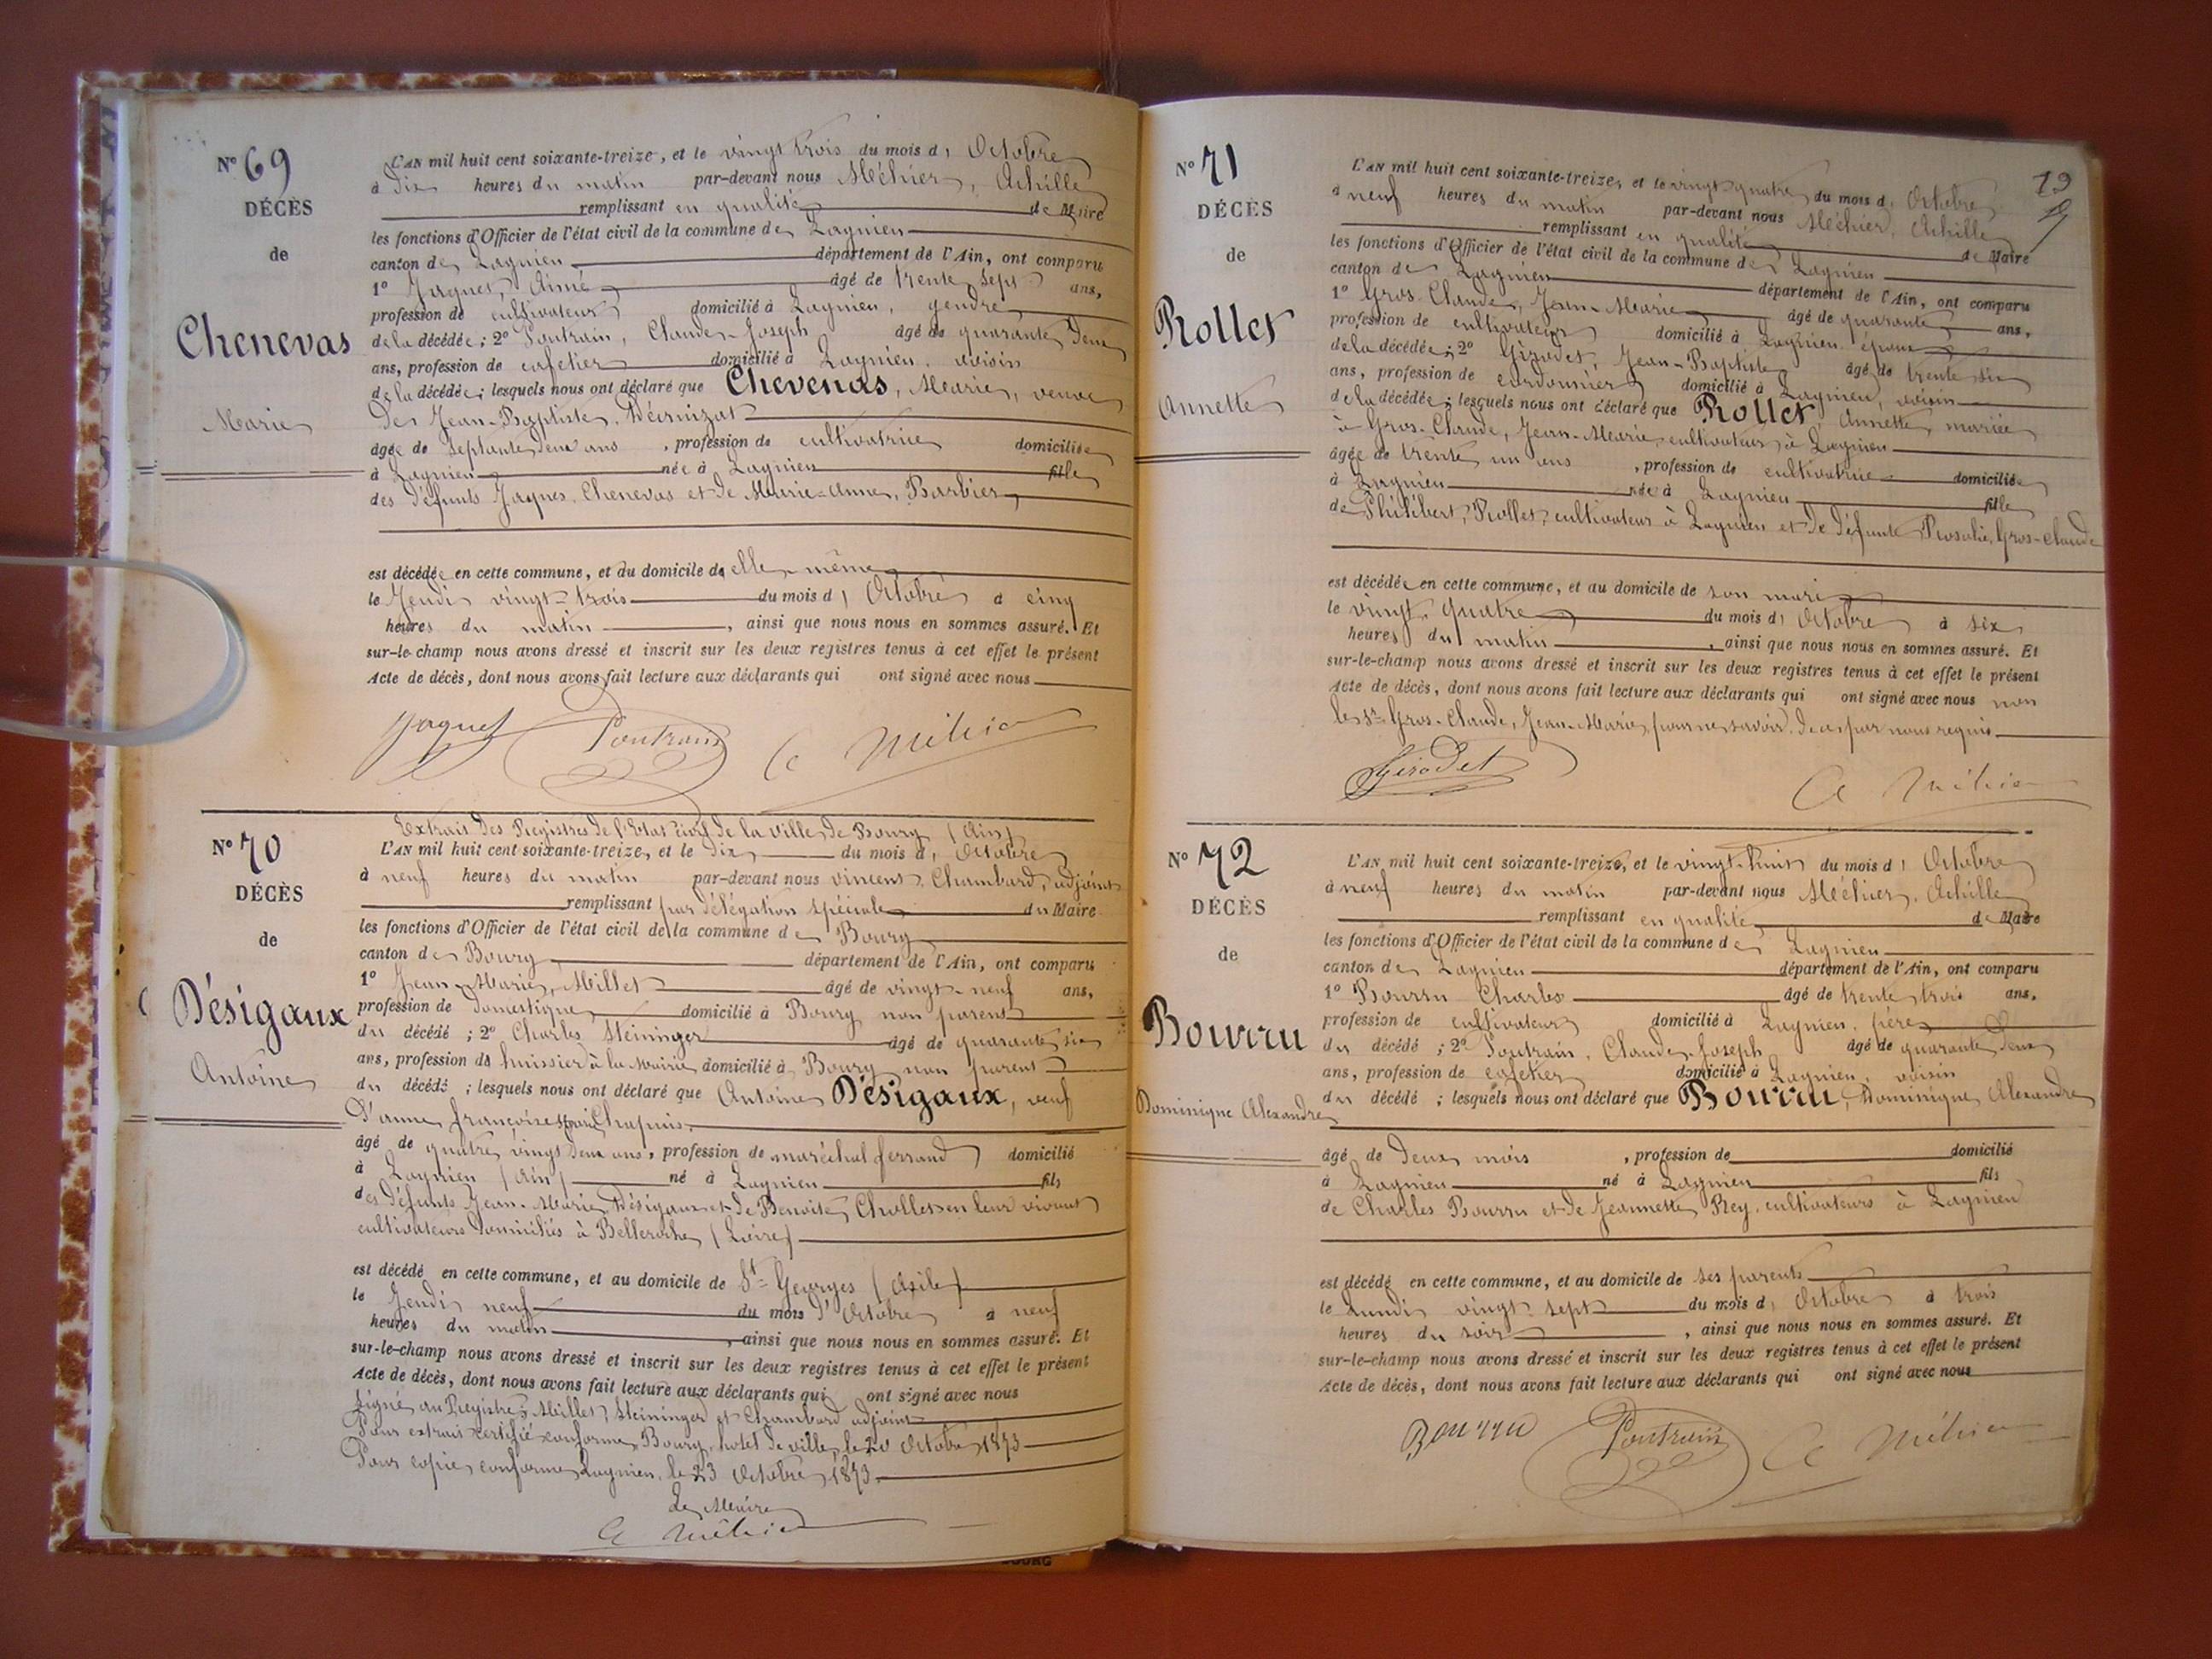 N° 69
DÉCÈS
de
Chenevas
Marie
L'AN mil huit cent soixante-treize, et le vingt trois du mois d' Octobre
à Dix heures du matin par-devant nous Méhier, Achille
remplissant en qualité de Maire
les fonctions d'Officier de l'état civil de la commune de Lagnieu
canton de Lagnieu département de l'Ain, ont comparu
1° Jaquet, Aimé âgé de trente sept ans,
profession de cultivateur domicilié à Lagnieu, gendre
de la décédée ; 2° Poutrain, Claude-Joseph âgé de quarante deux
ans, profession de cafetier domicilié à Lagnieu, voisin
de la décédée ; lesquels nous ont déclaré que Chevenas, Marie, veuve
De Jean-Baptiste
âgée de septante deux ans, profession de cultivatrice domiciliée
à Lagnieu née à Lagnieu fille
des défunts Jaques Chenevas et de Marie-Anne, Barbier
est décédée en cette commune, et au domicile de elle-même
le Jeudi vingt-trois du mois d' Octobre à cinq
heures du matin, ainsi que nous nous en sommes assuré. Et
sur-le-champ nous avons dressé et inscrit sur les deux registres tenus à cet effet le présent
Acte de décès, dont nous avons fait lecture aux déclarants qui ont signé avec nous
Jaquet Poutrain A Méhier
N° 70
DÉCÈS
de
Désigaux
Antoine
Extrait des Registres de l'Etat civil de la ville de Bourg (Ain)
L'AN mil huit cent soixante-treize, et le dix du mois d' Octobre
à neuf heures du matin par-devant nous Vincent Chambard, adjoint
remplissant par délégation spéciale du Maire
les fonctions d'Officier de l'état civil de la commune de Bourg
canton de Bourg département de l'Ain, ont comparu
1° Jean-Marie, Millet âgé de vingt-neuf ans,
profession de domestique domicilié à Bourg non parent
du décédé ; 2° Charles Steininger âgé de quarante six
ans, profession de huissier à la Mairie domicilié à Bourg non parent
du décédé ; lesquels nous ont déclaré que Antoine Désigaux, veuf
D'anne françoise Chapuis.
âgé de quatre vingt deux ans, profession de maréchal ferrand domicilié
à Lagnieu (Ain) né à Lagnieu fils
des défunts Jean-Marie Désigaux et de Benoite Chollet en leur vivant
cultivateurs domiciliés à Belleroche (Loire)
est décédé en cette commune, et au domicile de St-Georges (Asile)
le Jeudi neuf du mois d' Octobre à neuf
heures du matin, ainsi que nous nous en sommes assuré. Et
sur-le-champ nous avons dressé et inscrit sur les deux registres tenus à cet effet le présent
Acte de décès, dont nous avons fait lecture aux déclarants qui ont signé avec nous
signé au Registre, Millet, Steininger et Chambard adjoint
Pour extrait certifié conforme, Bourg, hotel de ville, le 20 Octobre 1873
Pour copie conforme Lagnieu, le 23 Octobre 1873
Le Maire
A Méhier
19
N° 71
DÉCÈS
de
Rollet
Annette
L'AN mil huit cent soixante-treize, et le vingt quatre du mois d' Octobre
à neuf heures du matin par-devant nous Méhier, Achille
remplissant en qualité de Maire
les fonctions d'Officier de l'état civil de la commune de Lagnieu
canton de Lagnieu département de l'Ain, ont comparu
1° Gros-Claude, Jean-Marie âgé de quarante ans,
profession de cultivateur domicilié à Lagnieu époux
de la décédée ; 2° Girodet, Jean-Baptiste âgé de trente six
ans, profession de cordonnier domicilié à Lagnieu, voisin
de la décédée ; lesquels nous ont déclaré que Rollet, Annette, mariée
à Gros-Claude, Jean-Marie, cultivateur à Lagnieu
âgée de trente un ans, profession de cultivatrice domiciliée
à Lagnieu née à Lagnieu fille
de Philibert, Rollet, cultivateur à Lagnieu et de défunte Rosalie, Gros-Claude
est décédée en cette commune, et au domicile de son mari
le vingt quatre du mois d' Octobre à six
heures du matin, ainsi que nous nous en sommes assuré. Et
sur-le-champ nous avons dressé et inscrit sur les deux registres tenus à cet effet le présent
Acte de décès, dont nous avons fait lecture aux déclarants qui ont signé avec nous non
le Sr Gros-Claude, Jean-Marie, pour ne savoir, de ce par nous requis
Girodet A Méhier
N° 72
DÉCÈS
de
Bourru
Dominique Alexandre
L'AN mil huit cent soixante-treize, et le vingt-huit du mois d' Octobre
à neuf heures du matin par-devant nous Méhier, Achille
remplissant en qualité de Maire
les fonctions d'Officier de l'état civil de la commune de Lagnieu
canton de Lagnieu département de l'Ain, ont comparu
1° Bourru Charles âgé de trente trois ans,
profession de cultivateur domicilié à Lagnieu, père
du décédé ; 2° Poutrain, Claude-Joseph âgé de quarante deux
ans, profession de cafetier domicilié à Lagnieu, voisin
du décédé ; lesquels nous ont déclaré que Bourru, Dominique Alexandre
âgé de Deux mois, profession de domicilié
à Lagnieu né à Lagnieu fils
de Charles Bourru et de Jeannette Rey, cultivateurs à Lagnieu
est décédé en cette commune, et au domicile de ses parents
le Lundi vingt-sept du mois d' Octobre à trois
heures du soir, ainsi que nous nous en sommes assuré. Et
sur-le-champ nous avons dressé et inscrit sur les deux registres tenus à cet effet le présent
Acte de décès, dont nous avons fait lecture aux déclarants qui ont signé avec nous
Bourru Poutrain A Méhier